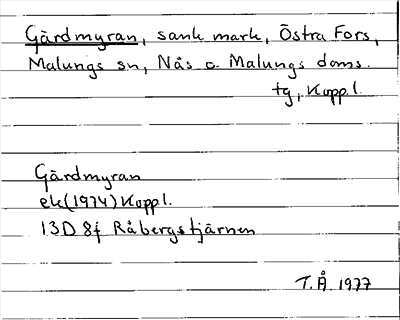 Gärdmyran, sank mark, Östra Fors,
Malungs sn, Nås o. Malungs doms.
tg, Koppl.
Gärdmyran
ek(1974) Koppl.
13D 8f Råbergstjärnen
T.Å. 1977